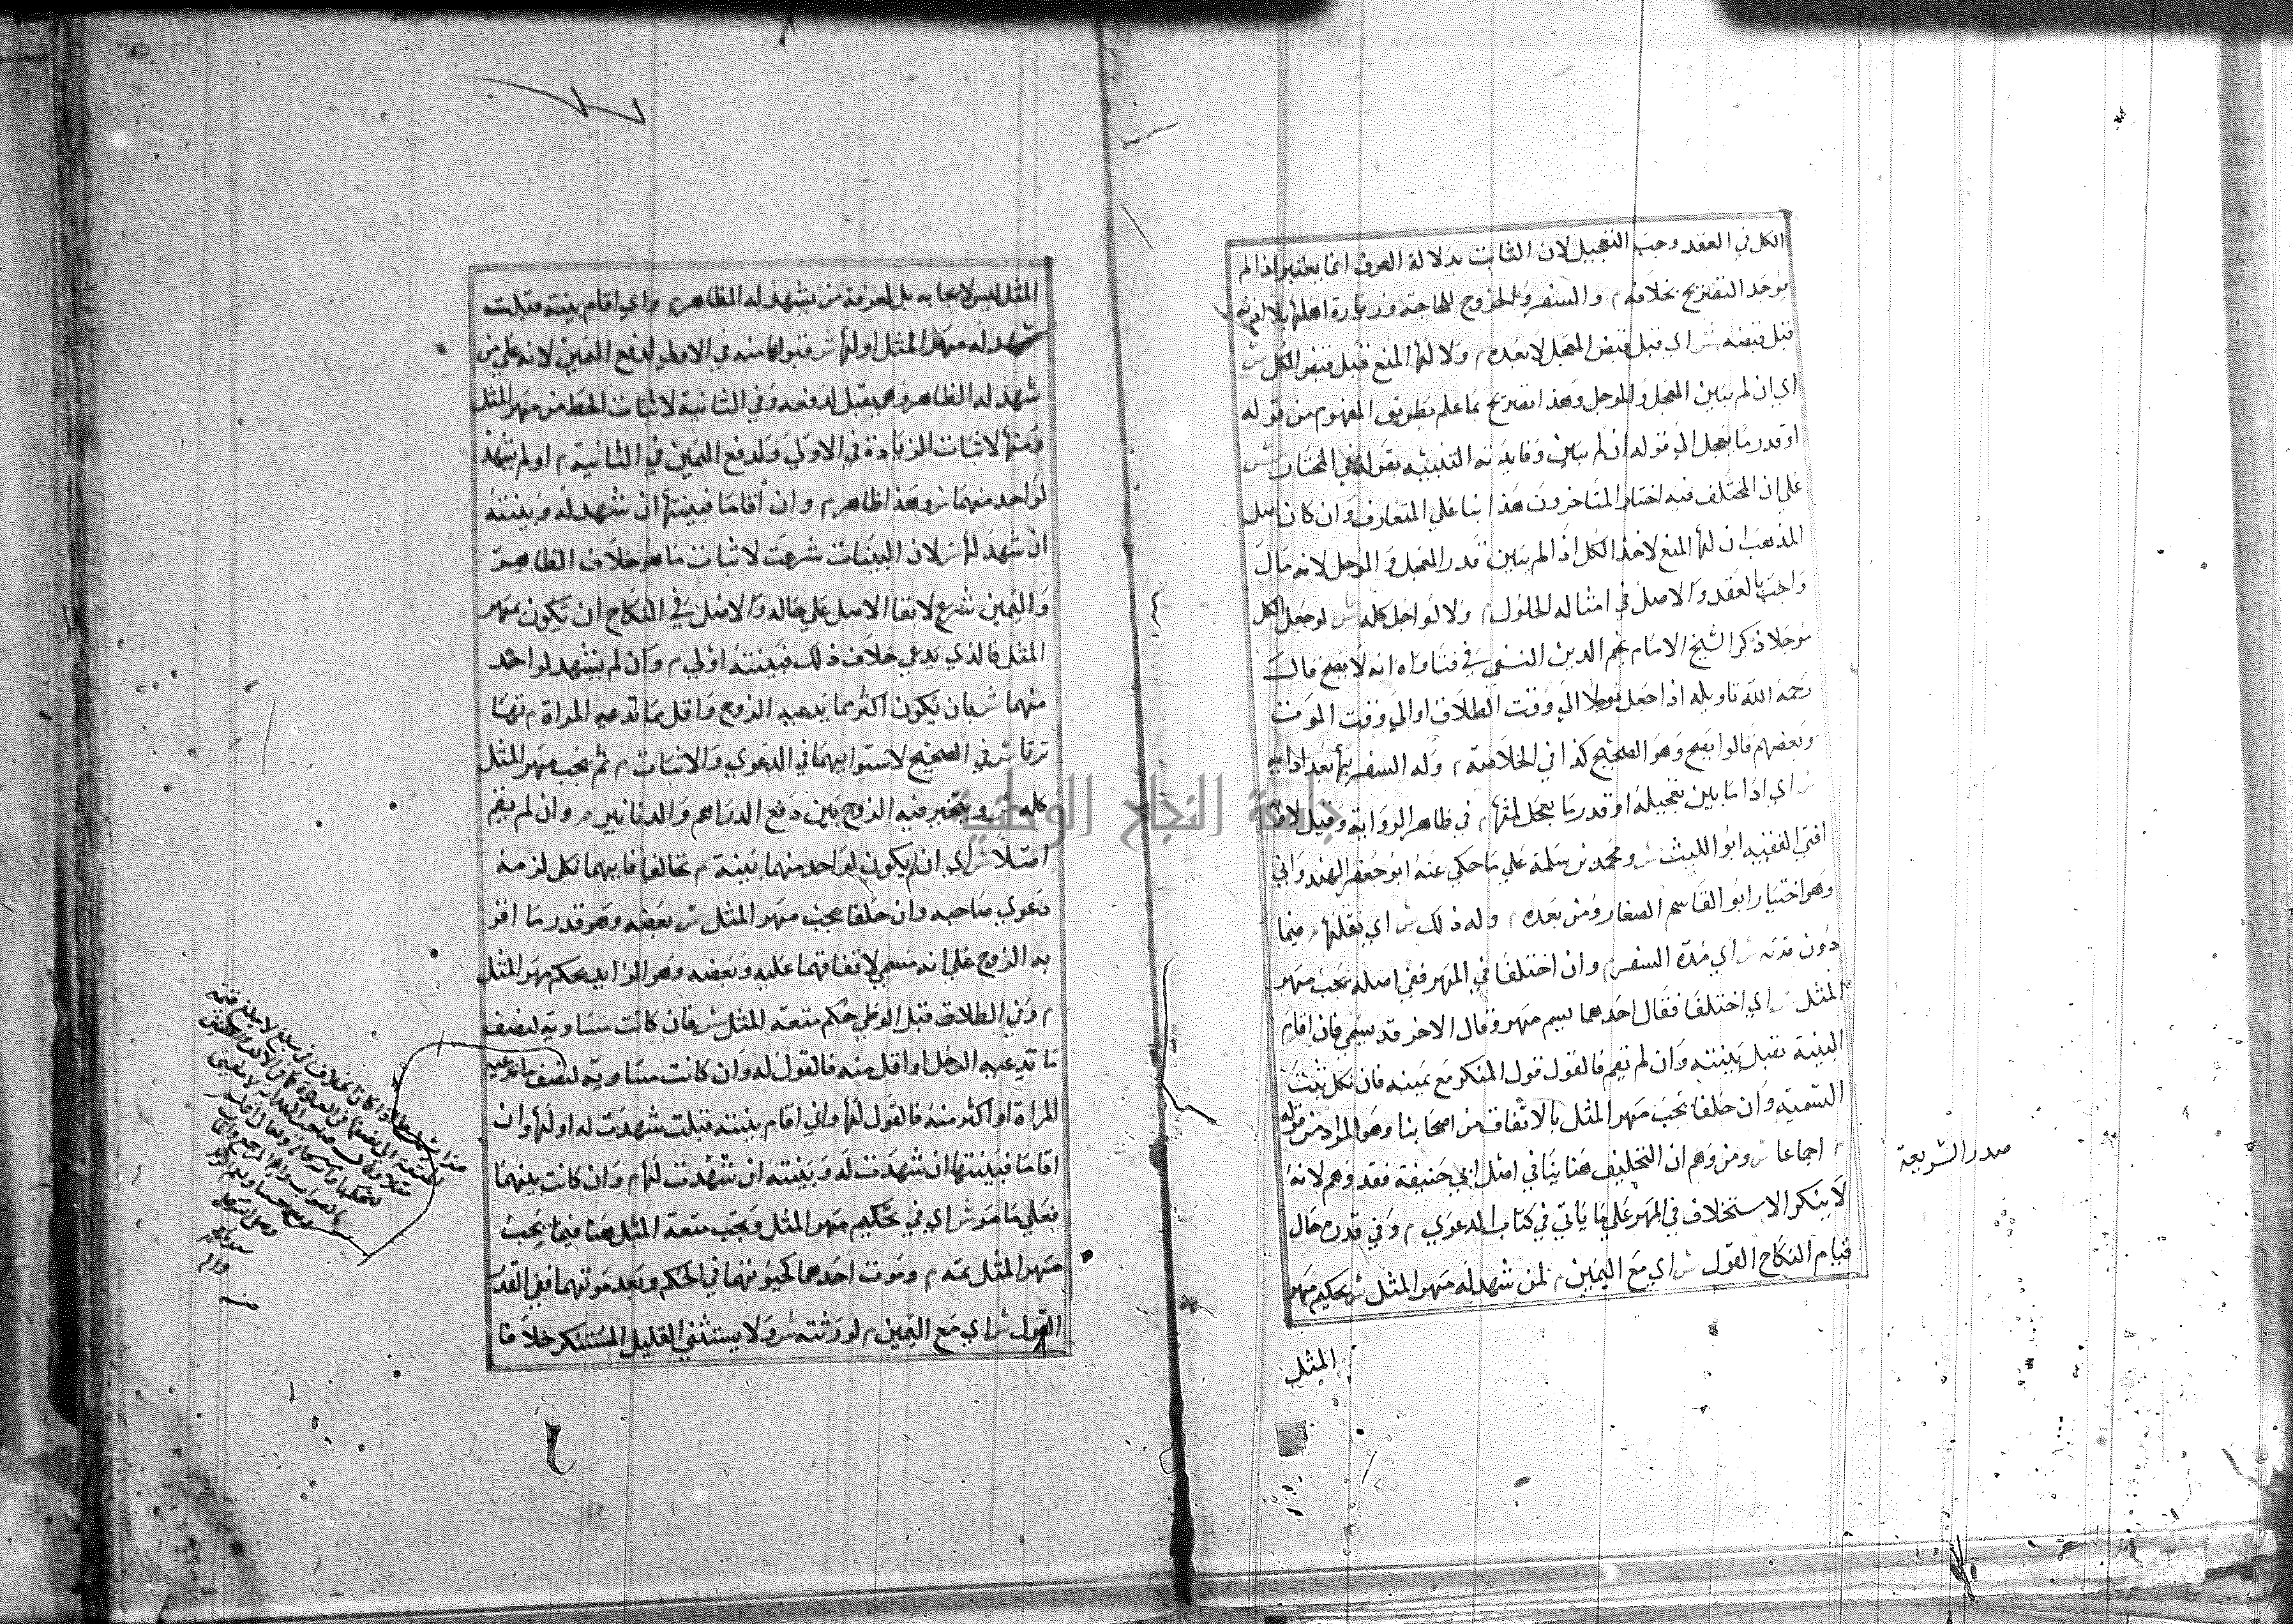 الكل في العقد وجب التعجيل لان الثابت بدلالة العرف انما يعتبر اذا لم
يوجد التصريح بخلافه م والسفر والخروج للحاجة وزيارة اهلها بلا اذنه
قبل قبضه ش اي قبل قبض المعجل لا بعده م ولا لها المنع قبل قبض الكل ش
اي ان لم يبين المعجل والموجل وهذا تصريح بما علم بطريق المفهوم من قوله
او قدر ما يعجل الي قوله ان لم يبين وفايدته التنبيه بقوله في المختار ش
علي ان المختلف فيه اختار المتاخرون هذا بنا علي المتعارف وان كان اصل
المذهب ان لها المنع لاخذ الكل اذا لم يبين قدر المعجل والموجل لانه مال
واجب بالعقد والاصل في امثاله الحلول م ولا لو اجل كله ش لو جعل الكل
موجلا ذكر الشيخ الامام نجم الدين النسفي في فتاواه انه لا يصح قال
رحمه الله تاويله اذا جعل موجلا الي وقت الطلاق او الي وقت الموت
وبعضهم قالوا يصح وهو الصحيح كذا في الخلاصة م وله السفر بها بعد ادايه
ش اي اذا ما بين تعجيله او قدر ما يعجل لمثلها م في ظاهر الرواية وقيل لا وبه
افتي الفقيه ابو الليث ش ومحمد بن سلمة علي ما حكي عنه ابو جعفر الهندواني
وهو اختيار ابو القاسم الصفار ومن بعده م وله ذلك ش اي نقلها م فيما
دون مدته ش اي مدة السفر م وان اختلفا في المهر ففي اصله يجب مهر
المثل ش اي اختلفا فقال احدهما لم يسم مهر وقال الاخر قد سمي فان اقام
البينة تقبل بينته وان لم تقم فالقول قول المنكر مع يمينه فان نكل ثبتت
التسمية وان حلفا يجب مهر المثل بالاتفاق من اصحابنا وهو المراد من قوله
م اجماعا ش ومن وهم ان التحليف هنا ينافي اصل ابي حنيفة فقد وهم لانه
لا ينكر الاستحلاف في المهر علي ما ياتي في كتاب الدعوي م وفي قدره حال
قيام النكاح القول ش اي مع اليمين م لمن شهد له مهر المثل ش تحكيم مهر
المثل
صدر الشريعة
المثل ليس لايجابه بل لمعرفة من يشهد له الظاهر م واي اقام بينته قبلت
شهد له مهر المثل او لها ش قبولها منه في الاولي لدفع اليمين لانه علي من
شهد له الظاهر وهي تقبل لدفعه وفي الثانية لاثبات الحط من مهر المثل
ومنها لاثبات الزيادة في الاولي ولدفع اليمين في الثانية م او لم يشهد
لواحد منهما ش وهذا ظاهر م وان اقاما فبينتها ان شهد له وبينته
ان شهد لها ش لان البينات شرعت لاثبات ما هو خلاف الظاهر
واليمين شرع لابقا الاصل علي حاله والاصل في النكاح ان يكون بمهر
المثل فالذي يدعي خلاف ذلك فبينته اولي م وان لم يشهد لواحد
منهما ش بان يكون اكثر مما يدعيه الزوج واقل مما تدعيه المراة م تهاتـ
ترتا ش في الصحيح لاستوايهما في الدعوي والاثبات م ثم يجب مهر المثل
كله ش ويتخير فيه الزوج بين دفع الدراهم والدنانير م وان لم يقم
اصلا ش اي ان لم يكون لواحد منهما بينة م تحالفا فايهما نكل لزمه
دعوي صاحبه وان حلفا يجب مهر المثل ش بعضه وهو قدر ما اقر
به الزوج علي انه مسمي لاتفاقهما عليه وبعضه وهو الزايد بحكم مهر المثل
م وفي الطلاق قبل الوطي حكم متعة المثل ش فان كانت مساوية لنصف
ما يدعيه الرجل او اقل منه فالقول له وان كانت مساوية لنصف ما تدعيه
المراة او اكثر منه فالقول لها واي اقام بينته قبلت شهدت له او لها وان
اقاما فبينتها ان شهدت له وبينته ان شهدت لها م وان كانت بينهما
فعلي ما مر ش اي في تحكيم مهر المثل ويجب متعة المثل هنا فيما يجب
مهر المثل ثمه م وموت احدهما كحيوتهما في الحكم وبعد موتهما ففي القدر
القول ش اي مع اليمين م لورثته ش ولا يستثني القليل المستنكر خلافا
جامعة النجاح الوطنية